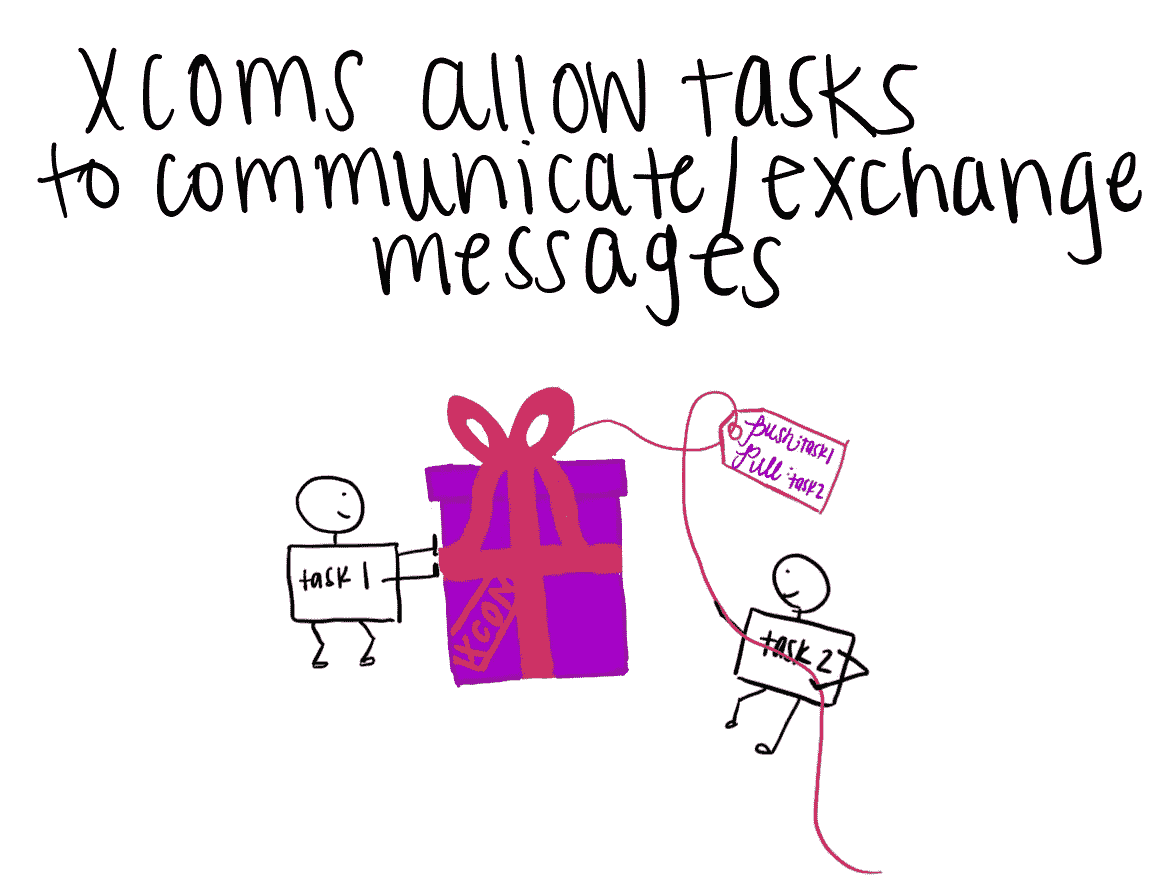 xcoms allow tasks
to communicate/exchange
messages
push:task1
pull:task2
task 1
XCOM
task 2